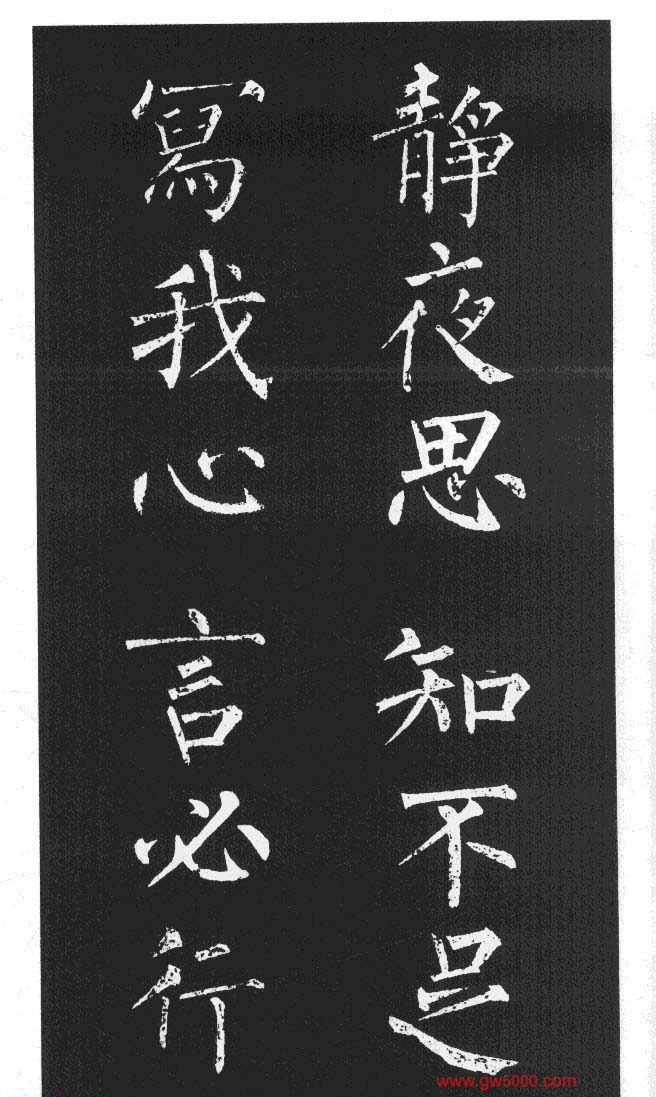 靜夜思 知不足
寫我心 言必行
www.gw5000.com